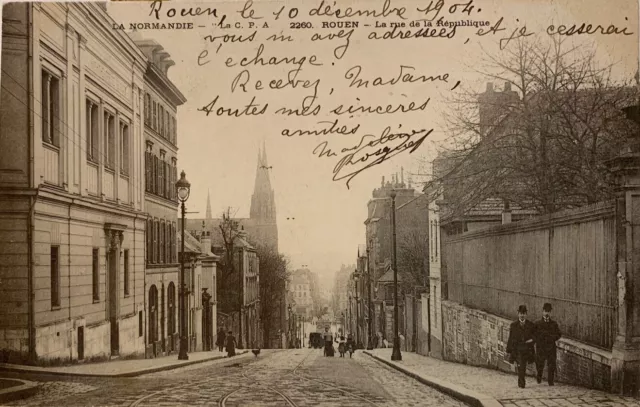 Rouen, le 10 décembre 1904.
LA NORMANDIE – "La C. P. A 2260. ROUEN – La rue de la République
vous m'avez adressées, et je cesserai
l'échange.
Recevez, Madame,
toutes mes sincères
amitiés
Madeleine